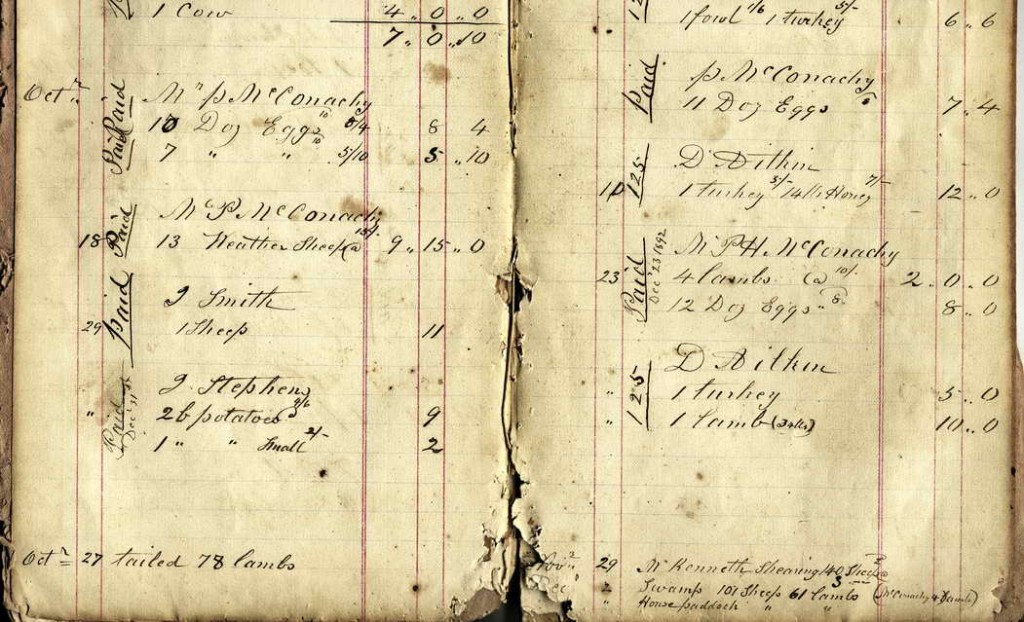 1 Cow 4 „ 0 „ 0
7 „ 0 „ 10
Octr Paid Mr P McConachy
Paid 10 Doz Eggs 10 8/4 8 4
7 „ „ 10 5/10 5 „ 10
Paid Mr P McConachy
18 13 Weather Sheep @ 15/- 9 „ 15 „ 0
Paid J Smith
29 1 Sheep 11
Paid Decr J Stephens
„ 2 b potatoes 9
1 „ „ Small 2/- 2
Octr 27 tailed 78 lambs
1 fowl 1/6 1 turkey 5/- 6 „ 6
Paid P McConachy
11 Doz Eggs 8 7 „ 4
125 D Aitkin
1 turkey 5/- 14 lb Honey 7/- 12 „ 0
Paid Decr 23 1892 Mr P H McConachy
23 4 lambs @ 10/- 2 „ 0 „ 0
12 Doz Eggs 8 8 „ 0
125 D Aitkin
„ 1 turkey 5 „ 0
„ 1 lamb 10 „ 0
Novr 29 McKenneth Shearing 40 Sheep
Decr 2 Swamp 107 Sheep 61 lambs (McConachy 4 lambs)
„ House paddock „ „